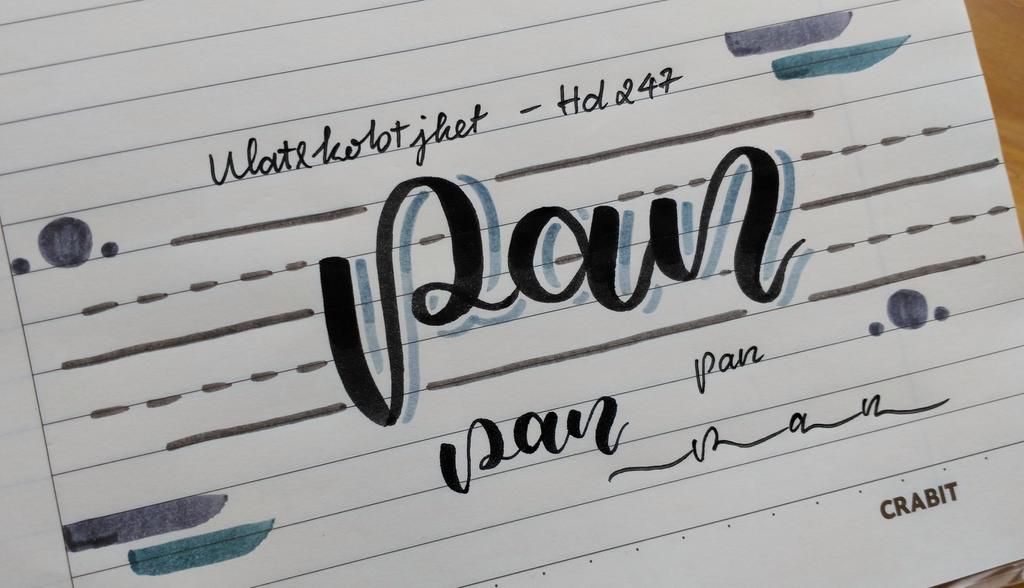 - Hd247
pan
pan
pan
pan
CRABIT